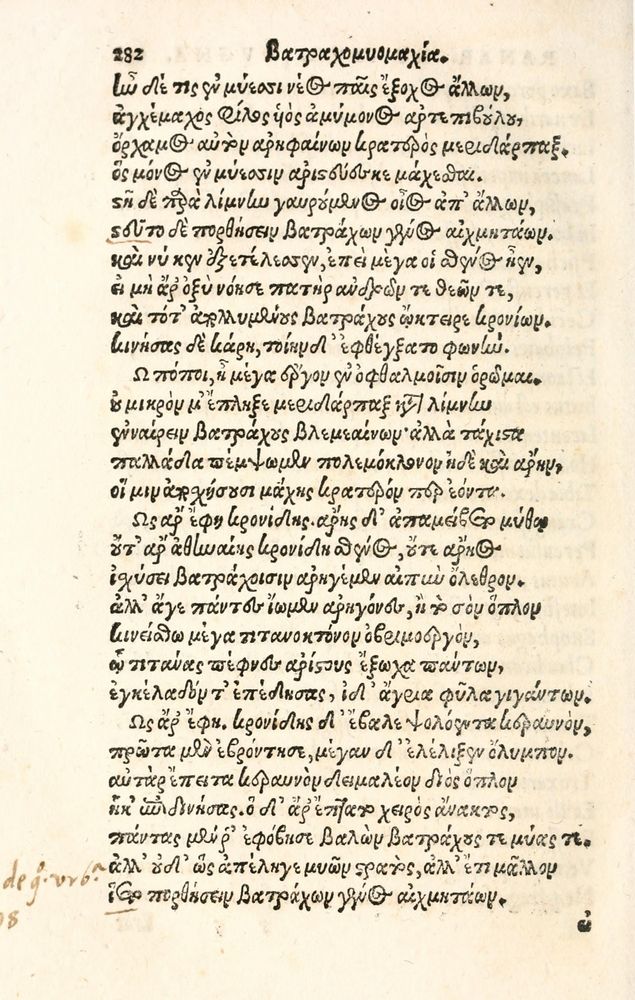 282 Βατραχομυομαχία.
ἰῶ δέ τις ἐν μύεσσι νέος παῖς ἔξοχος ἄλλων,
ἀγχέμαχος φίλος ἱὸς ἀμύμονος ἀρτεπιβούλου,
ὄρχαμος αὐτὸν ἀρηφαίνων κρατερὸς μεριδάρπαξ.
ὃς μόνος ἐν μύεσσιν ἀρίστευσκε μάχεσθαι.
στῆ δὲ παρὰ λίμνην γαυρούμενος οἶος ἀπ' ἄλλων,
στεῦτο δὲ πορθήσειν βατράχων γένος αἰχμητάων.
καὶ νύ κεν ἐξετέλεσσεν, ἐπεὶ μέγα οἱ σθένος ἦεν,
εἰ μὴ ἄρ ὀξὺ νόησε πατὴρ ἀνδρῶν τε θεῶν τε,
καὶ τότ' ἀπολλυμένους βατράχους ᾤκτειρε κρονίων.
κινήσας δὲ κάρη, τοίην δ' ἐφθέγξατο φωνήν.
Ω πόποι, ἦ μέγα ἔργον ἐν ὀφθαλμοῖσιν ὁρῶμαι.
οὐ μικρὸν μ' ἔπληξε μεριδάρπαξ κατὰ λίμνην
ἐναίρειν βατράχους βλεμεαίνων· ἀλλὰ τάχιστα
παλλάδα πέμψωμεν πολεμόκλονον ἠδὲ καὶ ἄρην,
οἵ μιν ἀποσχήσουσι μάχης κρατερόν περ ἐόντα.
Ως ἄρ' ἔφη κρονίδης. ἄρης δ' ἀπαμείβετο μύθῳ
οὔτ' ἄρ' ἀθηναίης κρονίδη σθένος, οὔτε ἄρηος
ἰσχύσει βατράχοισιν ἀρηγέμεν αἰπὺν ὄλεθρον.
ἀλλ' ἄγε πάντες ἴωμεν ἀρηγόνες, ἢ τὸ σὸν ὅπλον
κινείσθω μέγα τιτανοκτόνον ὀβριμοεργόν,
ᾧ τιτάνας πέφνες ἀρίστους ἔξοχα πάντων,
ἐγκέλαδόν τ' ἐπέδησας, ἰδ' ἄγρια φῦλα γιγάντων.
Ως ἄρ ἔφη. κρονίδης δ' ἔβαλε ψολόεντα κεραυνόν,
πρῶτα μὲν ἐβρόντησε, μέγαν δ' ἐλέλιξεν ὄλυμπον.
αὐτὰρ ἔπειτα κεραυνὸν δειμαλέον διὸς ὅπλον
ἧκ' ἐπιδινήσας. ὁ δ' ἄρ ἔπτατο χειρὸς ἄνακτος,
πάντας μέν ῥ' ἐφόβησε βαλὼν βατράχους τε μύας τε.
ἀλλ' οὐδ' ὣς ἀπέληγε μυῶν στρατός, ἀλλ' ἔτι μᾶλλον
ἵετο πορθήσειν βατράχων γένος αἰχμητάων.